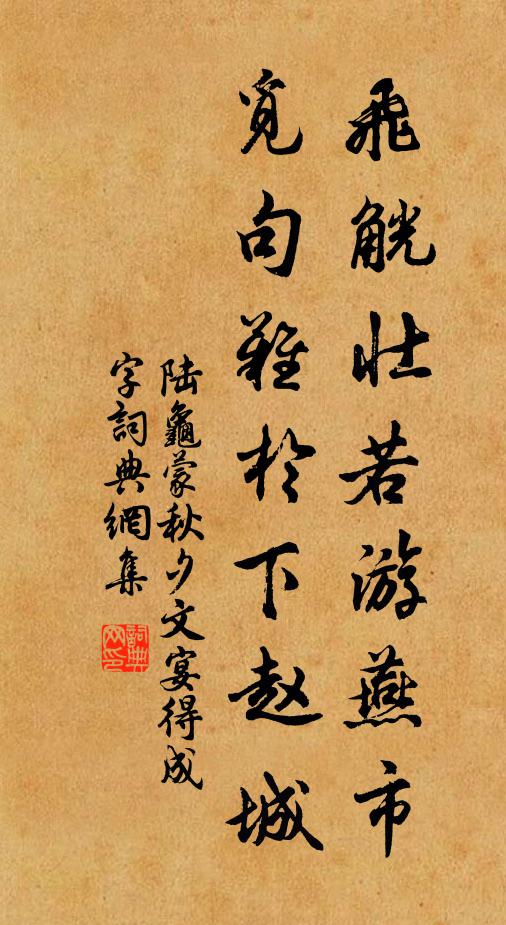 飛觥壯若游燕市
覓句難於下趙城
陆龜蒙秋夕文宴得成
字詞典網集
詞典
网印